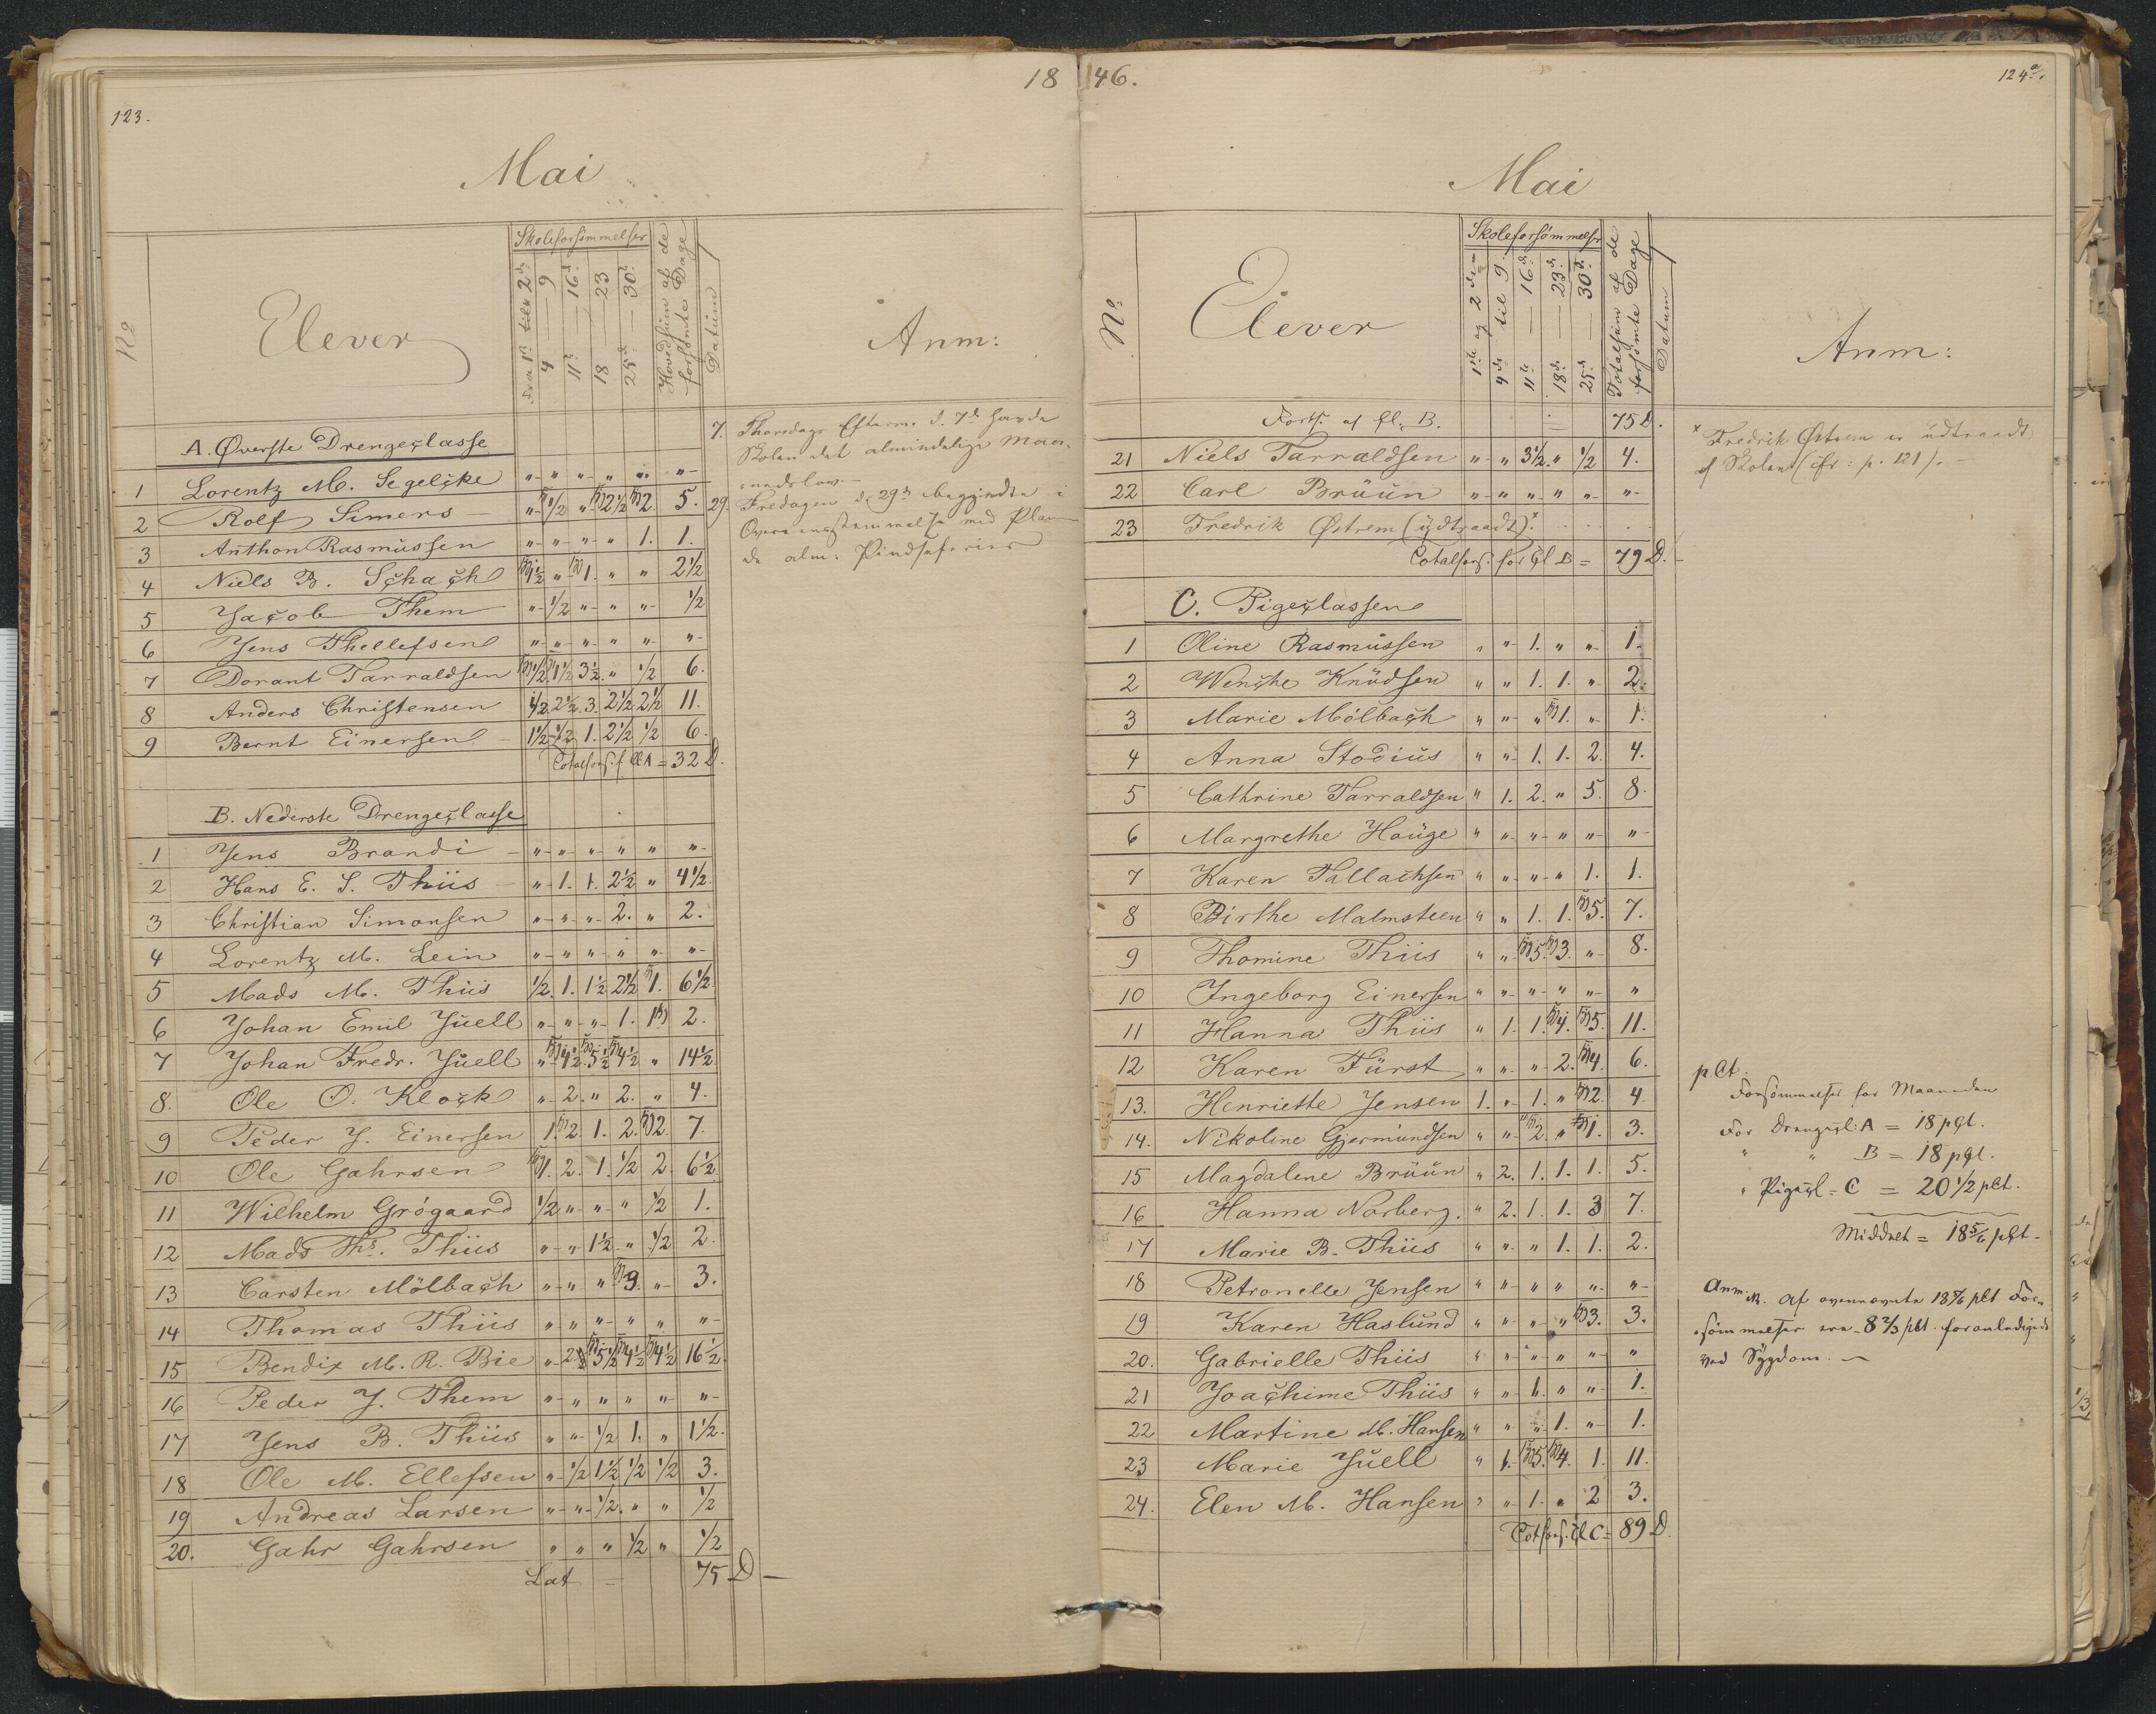 123.
18
Mai
No
Elever
Skoleforsömmelser
Fra 1ste til 2d.
4 — 9
11te — 16d.
18 — 23
25d. — 30te
Hovedsum af de
forsömte Dage
Datum
Anm:
A. Øverste Drengeclasse
1 Lorentz M. Segelcke " " " " " "
2 Rolf Simers " 1/2 " 2 1/2 2. 5.
3 Anthon Rasmussen " " " " 1. 1.
4 Niels B. Schach 1 1/2 " 1. " " 2 1/2
5 Jacob Them " 1/2 " " " 1/2
6 Jens Thellefsen " " " " " "
7 Dorant Tarraldsen 1/2 1 1/2 3 1/2. " 1/2 6.
8 Anders Christensen 1/2. 2 1/2. 3. 2 1/2 2 1/2 11.
9 Bernt Einersen 1 1/2 1/2 1. 2 1/2 1/2 6.
Totalfors. f. Cl A = 32 D.
7. Thorsdags Efterm. d. 7de havde
Skolen det almindelige Maa-
nedslov.—
29. Fredagen d. 29de begyndte i
Overeensstemmelse med Planen
de alm: Pindseferier
B. Nederste Drengeclasse
1 Jens Brandi " " " " " "
2 Hans E. S. Thiis " 1. 1. 2 1/2 " 4 1/2.
3 Christian Simonsen " " " 2. " 2.
4 Lorentz M. Lein " " " " " "
5 Mads M. Thiis 1/2. 1. 1 1/2 2 1/2 1. 6 1/2.
6 Johan Emil Juell " " " 1. 1 2.
7 Johan Fredr. Juell " 4 1/2. 5 1/2 4 1/2 " 14 1/2.
8. Ole O. Klock " 2. " 2. " 4.
9 Peder J. Einersen 1. 2. 1. 2. 2. 7.
10 Ole Gahrsen 1. 2. 1. 1/2 2. 6 1/2.
11 Wilhelm Grógaard 1/2 " " " 1/2 1.
12 Mads Ths. Thiis " " 1 1/2. " 1/2 2.
13 Carsten Mölbach " " " 3. " 3.
14 Thomas Thiis " " " " " "
15 Bendix M. R. Bie " 2 5 1/2 4 1/2 4 1/2 16 1/2.
16 Peder J. Them " " " " " "
17 Jens B. Thiis " " 1/2 1. " 1 1/2.
18 Ole M. Ellefsen " 1/2 1 1/2 1/2 1/2 3.
19 Andreas Larsen " " 1/2. " " 1/2
20. Gahr Gahrsen " " " 1/2 " 1/2
Lat = 75 D —
46.
124a.
Mai
No
Elever
Skoleforsömmelser
1ste og 2den
4de til 9.
11te — 16de
18de — 23de
25de — 30te
Totalsum af de
forsömte Dage
Datum
Anm:
Forts. af Cl. B. = 75 D.
21 Niels Tarraldsen " " 3 1/2. " 1/2 4.
22 Carl Brüün " " " " " "
23 Fredrik Østrem (udtraadt)x
Totalfors. for Cl B = 79 D.
x Fredrik Østrem er udtraadt
af Skolen (cfr: p. 121).
C. Pigeclassen
1 Oline Rasmussen " " 1. " " 1.
2 Wenche Knudsen " " 1. 1. " 2.
3 Marie Mölbach " " " 1. " 1.
4 Anna Stodius " " 1. 1. 2. 4.
5 Cathrine Tarraldsen " 1. 2. " 5. 8.
6 Margrethe Hauge " " " " " "
7 Karen Tallachsen " " " " 1. 1.
8 Birthe Malmsteen " " 1. 1. 5. 7.
9 Thomine Thiis " " 5. 3. " 8.
10 Ingeborg Einersen " " " " " "
11 Hanna Thiis " 1. 1. 4. 5. 11.
12 Karen Fürst " " " 2. 4. 6.
13. Henriette Jensen 1. " 1. " 2. 4
14. Nikoline Gjermundsen " " 2. " 1. 3.
15 Magdalene Brüün " 2. 1. 1. 1. 5.
16 Hanna Norberg. " 2. 1. 1. 3 7.
17 Marie B. Thiis " " " 1. 1. 2.
18 Petronelle Jensen " " " " " "
19 Karen Haslund " " " " 3. 3.
20. Gabrielle Thiis " " " " " "
21 Joachime Thiis " " 1. " " 1.
22 Martine M. Hansen " " " 1. " 1.
23 Marie Juell " 1. 5. 4. 1. 11.
24. Elen M. Hansen " " 1. " 2 3.
Totfors. Cl C = 89 D.
pCt.
Forsömmelser for Maaneden
For Drengecl: A = 18 pCt.
" " B = 18 pCt.
" Pigecl = C = 20 1/2 pCt.
Middelt = 18 5/6 pCt.
Anm. Af ovennævnte 18 5/6 pCt For-
sömmelser ere 8 2/3 pCt. foranledigede
ved Sygdom. —